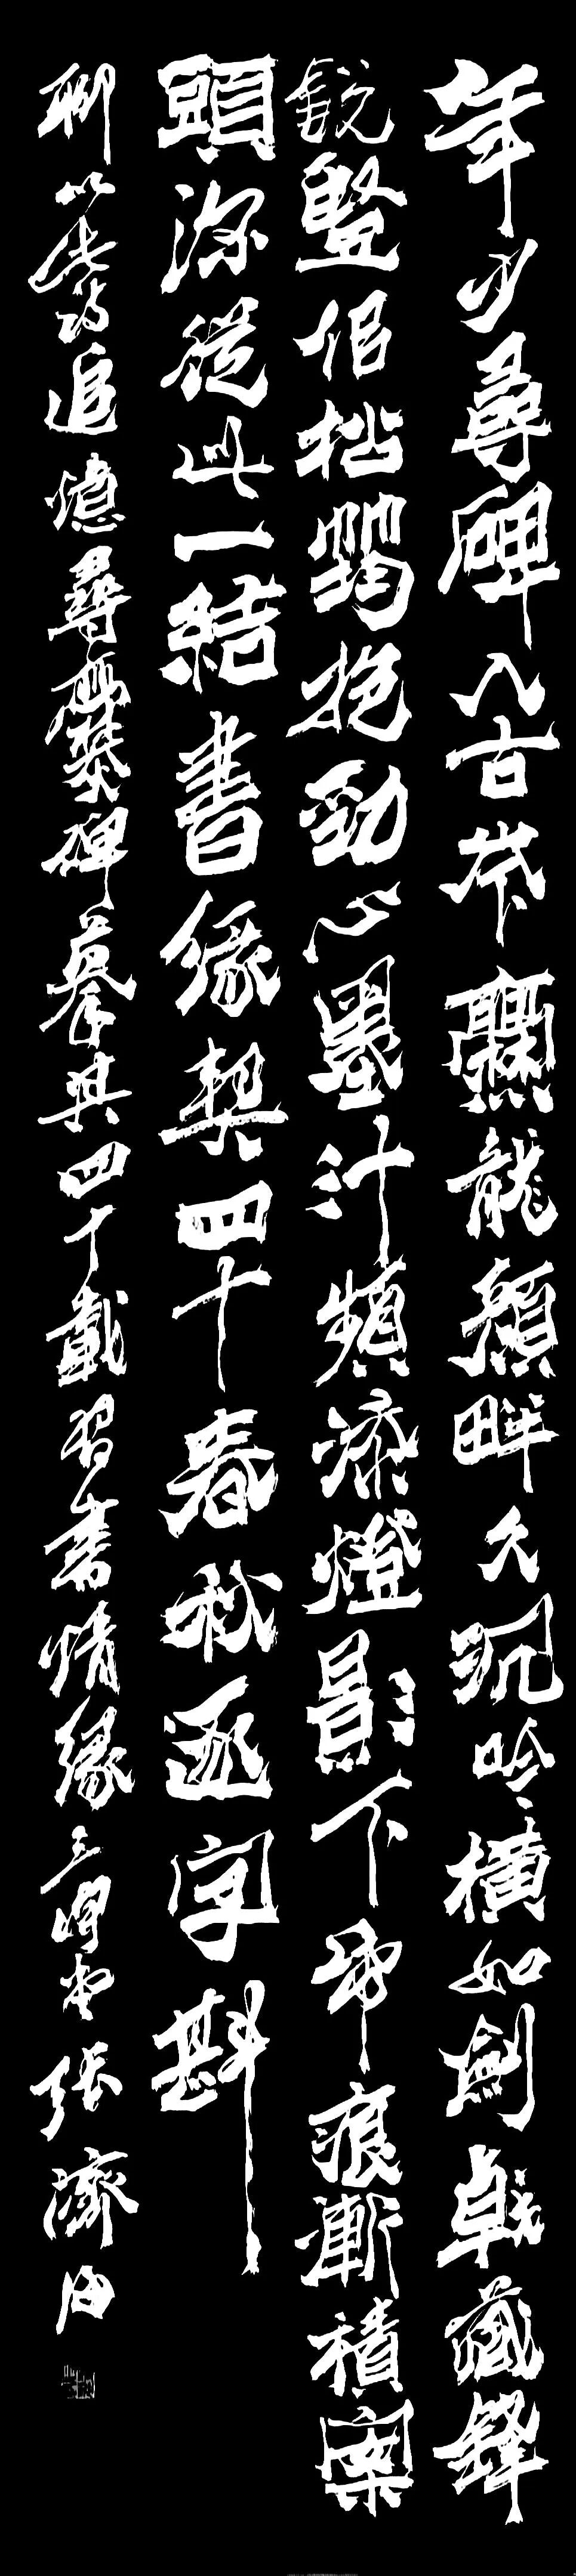 年少尋碑入古岑爨龍顏畔久沉吟橫如劍戟藏鋒
銳豎佀枯抱勁心墨汁頻添燈影下帋痕漸積案
頭深從此一結書緣契四十春秋逐字斟
聊以此詩追憶尋爨碑摹其四十載習書情緣三堂張濟海